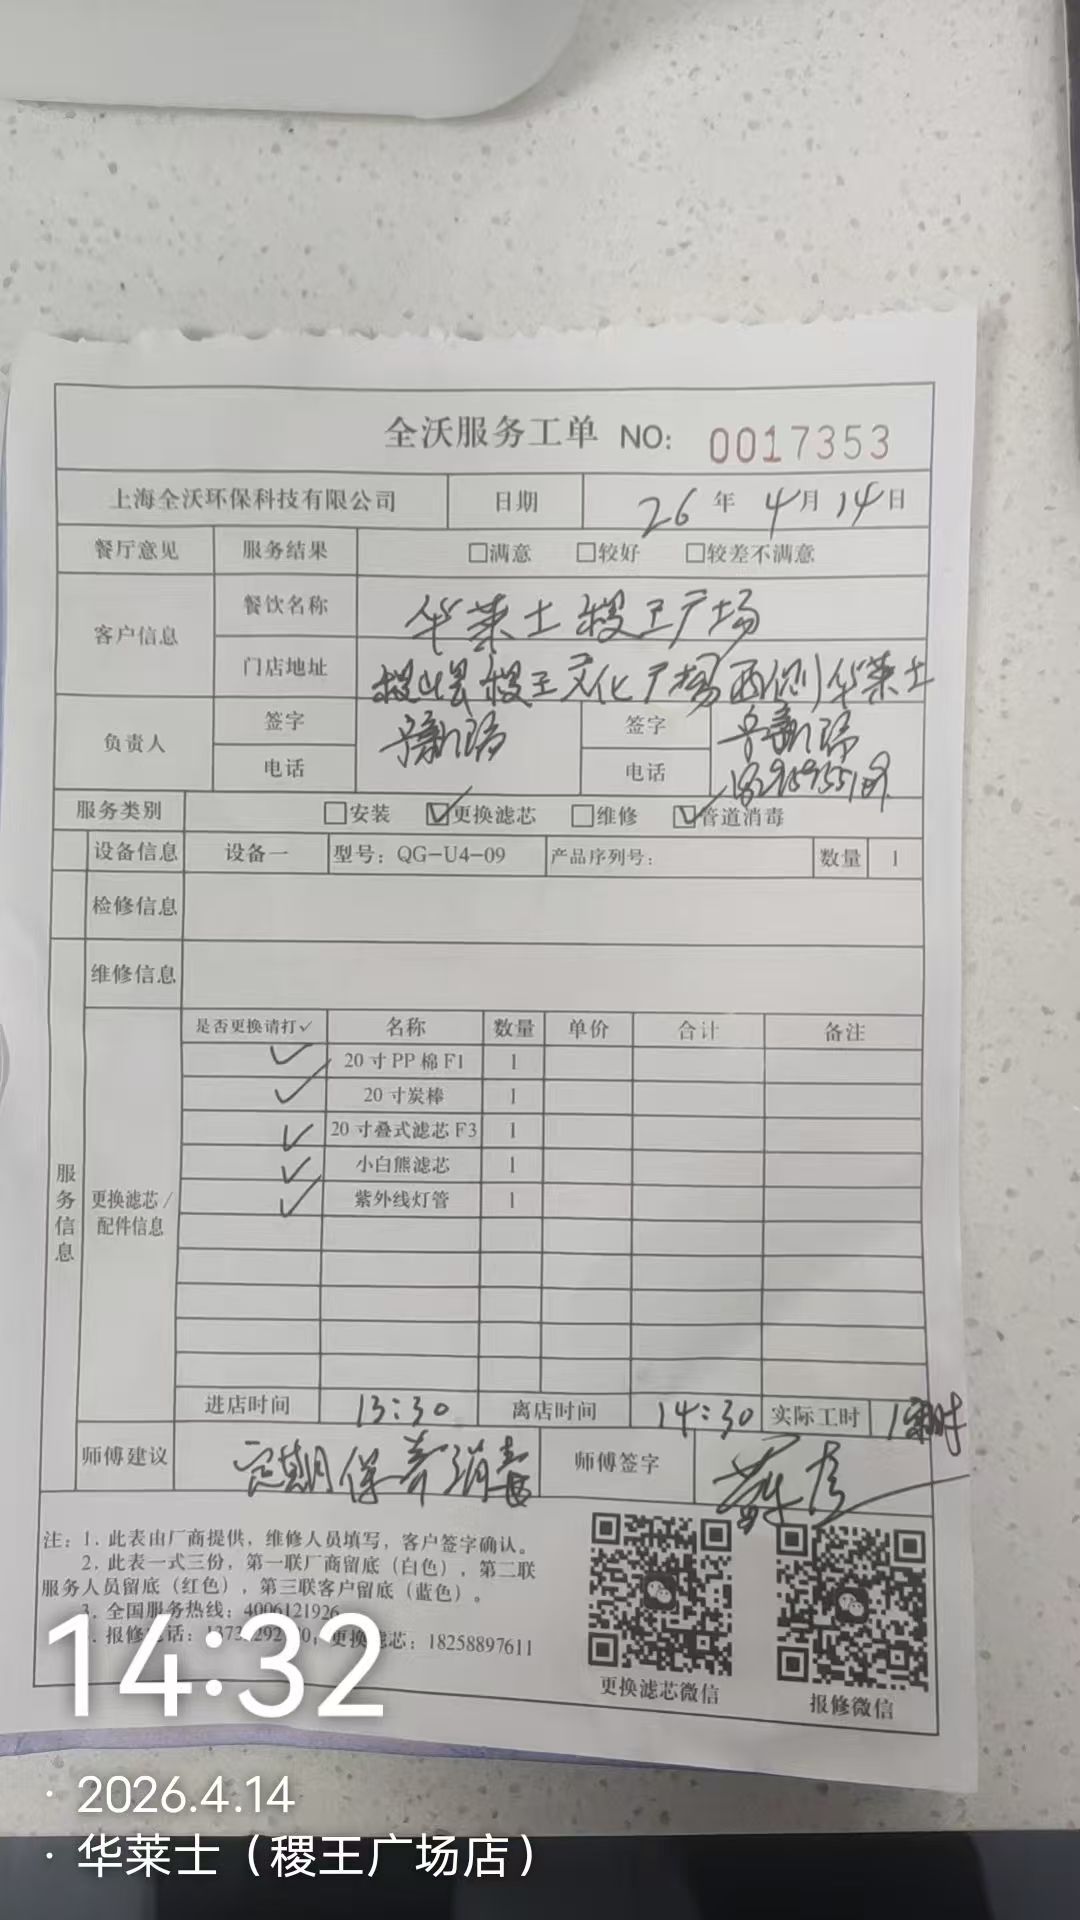 全沃服务工单 NO: 0017353
上海全沃环保科技有限公司 日期 26年4月14日
餐厅意见 服务结果 □满意 □较好 □较差不满意
客户信息 餐饮名称 华莱士稷王广场
门店地址 稷山县稷王文化广场西侧华莱士
负责人 签字 签字
电话 电话
服务类别 □安装 ☑更换滤芯 □维修 ☑管道消毒
设备信息 设备一 型号: QG-U4-09 产品序列号: 数量 1
检修信息
维修信息
是否更换请打✓ 名称 数量 单价 合计 备注
✓ 20寸PP棉F1 1
✓ 20寸炭棒 1
✓ 20寸叠式滤芯F3 1
✓ 小白熊滤芯 1
✓ 紫外线灯管 1
服务信息
更换滤芯/
配件信息
进店时间 13:30 离店时间 14:30 实际工时 1
师傅建议 定期保养消毒 师傅签字
注: 1. 此表由厂商提供，维修人员填写，客户签字确认。
2. 此表一式三份，第一联厂商留底（白色），第二联
服务人员留底（红色），第三联客户留底（蓝色）。
3. 全国服务热线: 4006121926
报修电话: 更换滤芯: 18258897611
更换滤芯微信 报修微信
14:32
· 2026.4.14
· 华莱士（稷王广场店）